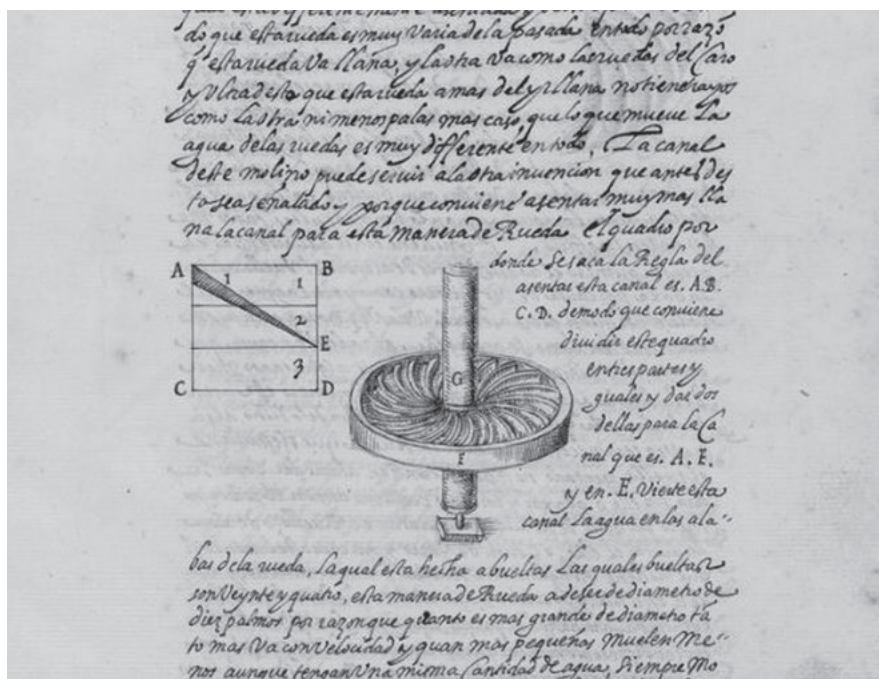 do que esta rueda es muy varia de la pasada en todo por razõ
q̃ esta rueda va llana, y la otra va como las ruedas del Caro
y ultra desto que esta rueda a mas del yr llana no tiene rayos
como la otra ni menos palas mas caso, que lo que mueve la
agua de las ruedas es muy differente en todo, La canal
deste molino puede servir a la otra invencion que antes des
to sea señalado y porque conviene asentar muy mas lla
na la canal para esta manera de Rueda el quadro por
donde se saca la Regla del
asentar esta canal es. A.B.
C.D. de modo que conviene
dividir este quadro
en tres partes y
guales y dar dos
dellas para la Ca
nal que es. A. E.
y en. E. Vierte esta
canal la agua en los ala-
A B
1 1
2
E
3
C D
G
F
bas de la rueda, la qual esta hecha a bueltas las quales bueltas
son veynte y quatro, esta manera de Rueda a de ser de diametro de
diez palmos por razon que quanto es mas grande de diametro tã
to mas va con velocidad y quan mas pequeñas muelen me-
nos aunque tengan una misma Cantidad de agua, Siempre mo